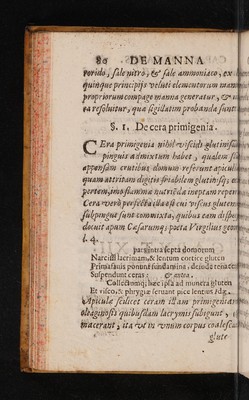 80 DE MANNA
rorido, sale nitro, & sale ammoniaco, ex
quinque principijs veluti elementorum
propriorum compage manna generatur, &
ea resoluitur, qua sigillatim probanda sunt.
§. 1. De cera primigenia.
CEra primigenia nihil viscidi glutinis
pinguis admixtum habet, qualem
appensam cruribus domum referunt apiculæ
quam attritam digitis sectabilem glutinosq;
pertem, imo flamma nutriēda ineptam
Cera verò perfecta illa est cui viscus gluten
subpingue sunt commixta, quibus eam
docuit apum Cæsarumq; poeta Vergilius
l. 4.
intra septa domorum
Narcissi lacrimam, & lentum cortice gluten
Prima fauis ponunt fundamina, deinde tenaces
Suspendunt ceras: & antea.
Collectumq; hæc ipsa ad munera gluten
Et visco, & phrygiæ seruant pice lentius Idæ.
Apiculæ scilicet ceram illam primigeniam
oleaginosis quibusdam lacrymis subigunt,
macerant, ita vt in vnum corpus
glute-